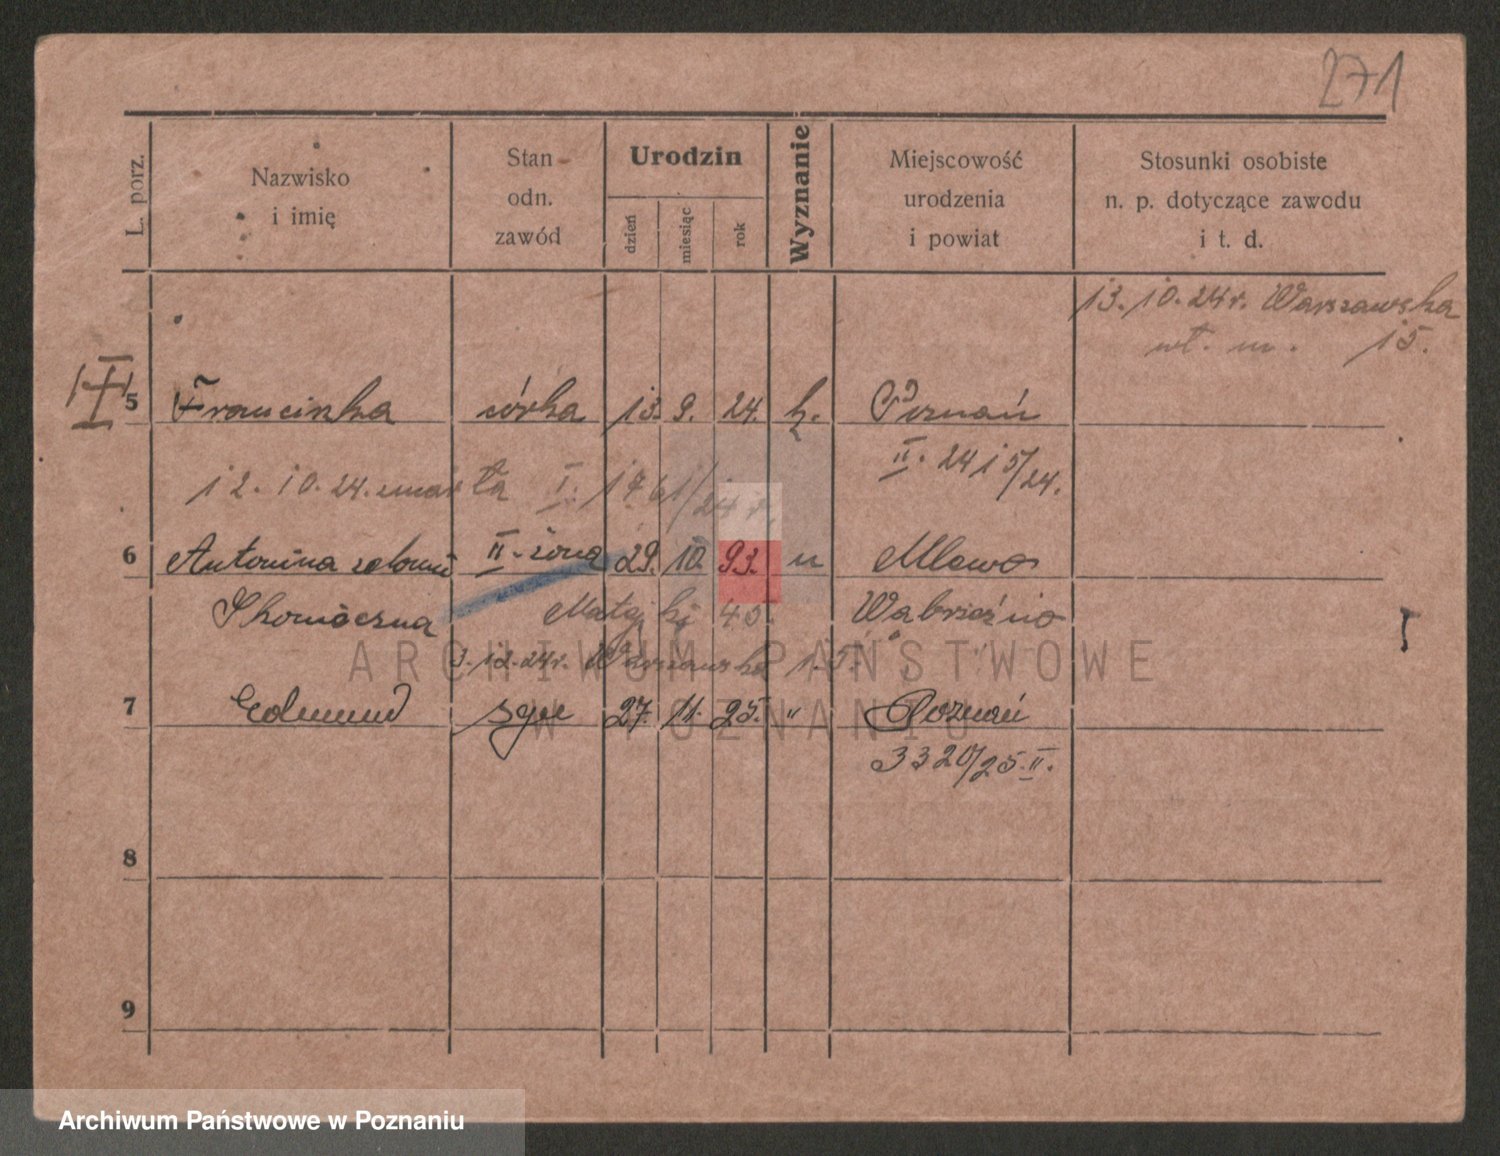 271
L. porz.
Nazwisko
i imię
Stan
odn.
zawód
Urodzin
dzień
miesiąc
rok
Wyznanie
Miejscowość
urodzenia
i powiat
Stosunki osobiste
n. p. dotyczące zawodu
i t. d.
13. 10. 24 r. Warszawska
wł. m. 15.
5 Franciszka córka 13. 9. 24. k. Poznań
II. 24 15/24.
12. 10. 24. zmarła I. 1761/24 r.
6 Antonina II. żona 29. 10. 93. " Mlewo
Matejki 45. Wąbrzeźno
3. 12. 24 r. Warszawska 15.
7 Edmund syn 27. 11. 25. " Poznań
3320/25. II.
8
9
ARCHIWUM PAŃSTWOWE
W POZNANIU
Archiwum Państwowe w Poznaniu